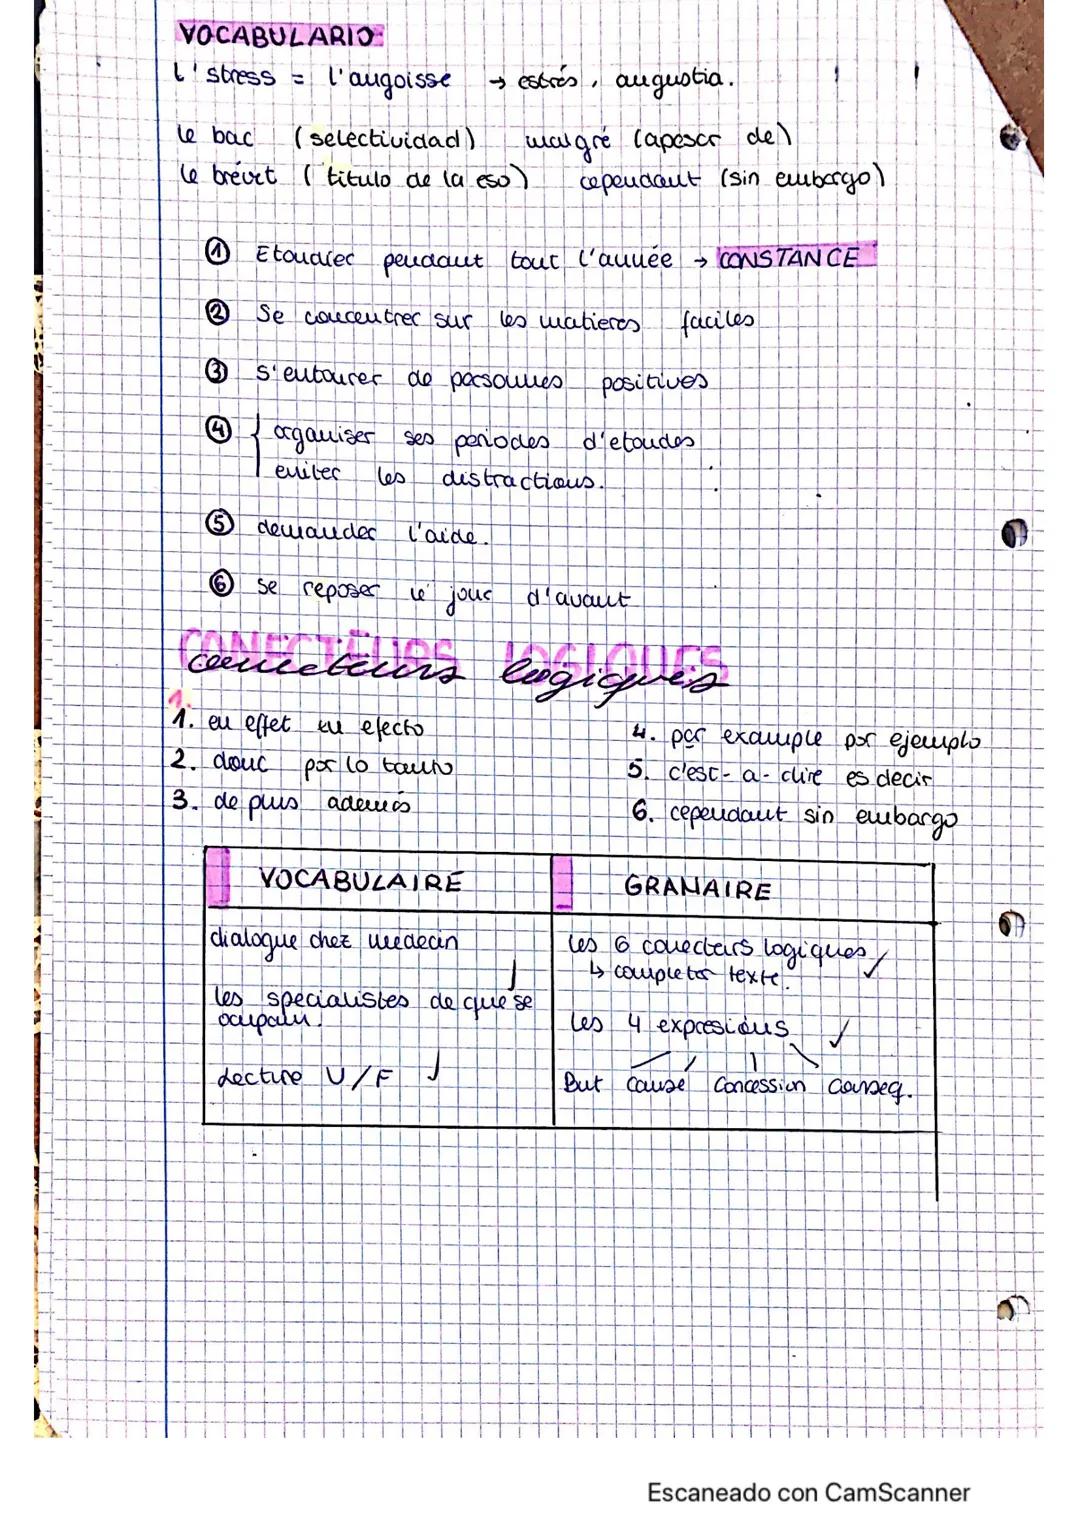 VOCABULARIO:
L'stress = l'angoisse → estrés, angustia.
le bac (selectividad) malgré (apesar de)
le brévet (titulo de la eso) cependant (sin embargo)
① Etoudrer pendant tout l'année → CONSTANCE
② Se concentrer sur les matieres faciles
③ s'entourer de personnes positives
④ { organiser ses periodes d'etoudes
eviter les distractions.
⑤ demander l'aide.
⑥ se reposer le jour d'avant
CONECTEURS LOGIQUES
conecteurs logiques
1. en effet en efecto
2. donc por lo tanto
3. de plus además
4. par example por ejemplo
5. c'est-a-dire es decir
6. cependant sin embargo
VOCABULAIRE
dialogue chez medecin
les specialistes de que se
ocupan.
Lecture V/F
GRAMAIRE
les 6 conecteurs logiques
↳ completer texte.
les 4 expresions
But Cause Concession conseq.
Escaneado con CamScanner